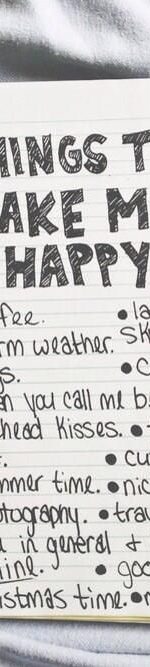 INGS T
AKE M
HAPPY
fee. • la
rm weather. sk
s. • c
n you call me b
head kisses. •
• cu
mmer time. • nic
tography. • trav
in general +
ine. • goo
istmas time. •